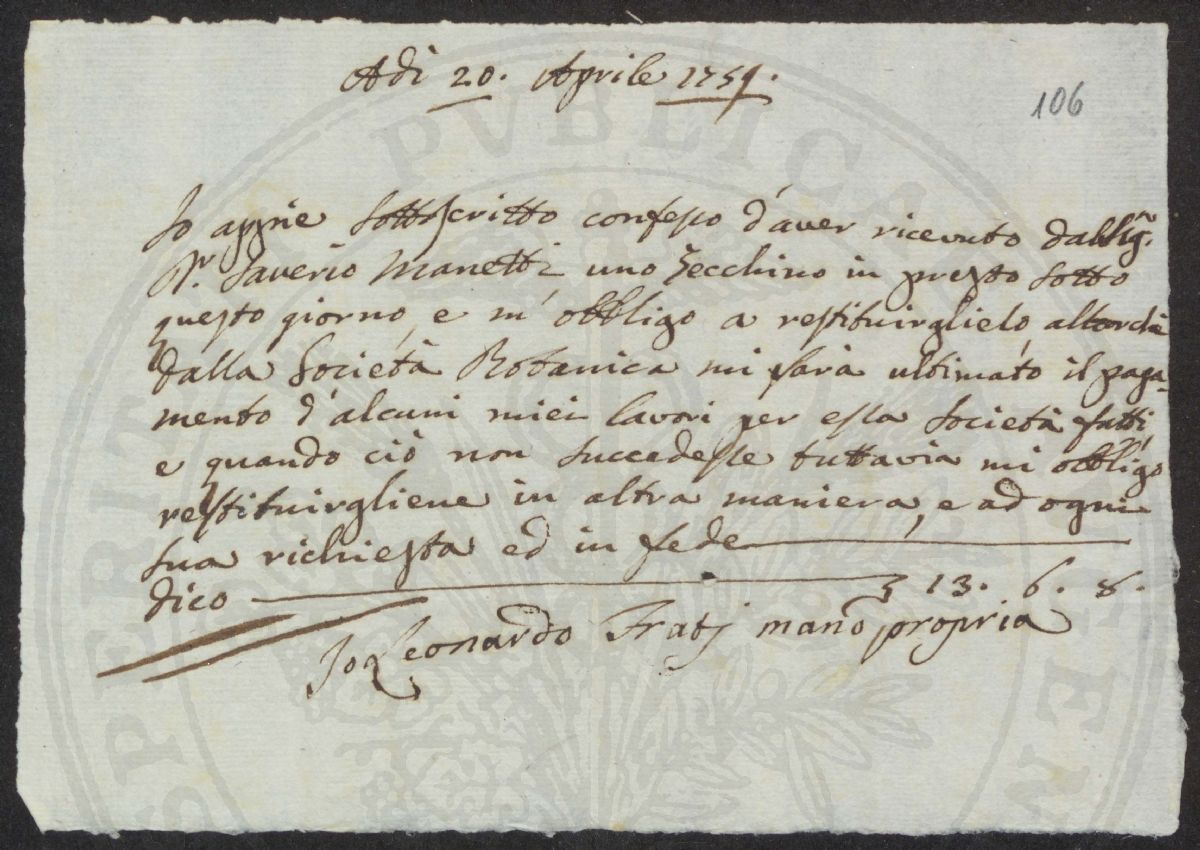 Adì 20. Aprile 1751.
106
Io appiè sottoscritto confesso d'aver ricevuto dall Sig.
Dr. Saverio Manetti uno Zecchino in presto sotto
questo giorno, e m'obbligo a restituirglielo, allorchè
dalla Società Botanica mi sarà ultimato il paga-
mento d'alcuni miei lavori per essa Società fatti
e quando ciò non succedesse tuttavia mi obbligo
restituirgliene in altra maniera, e ad ogni
sua richiesta ed in fede
dico 13. 6. 8.
Io Leonardo Frati mano propria
PVBLICA